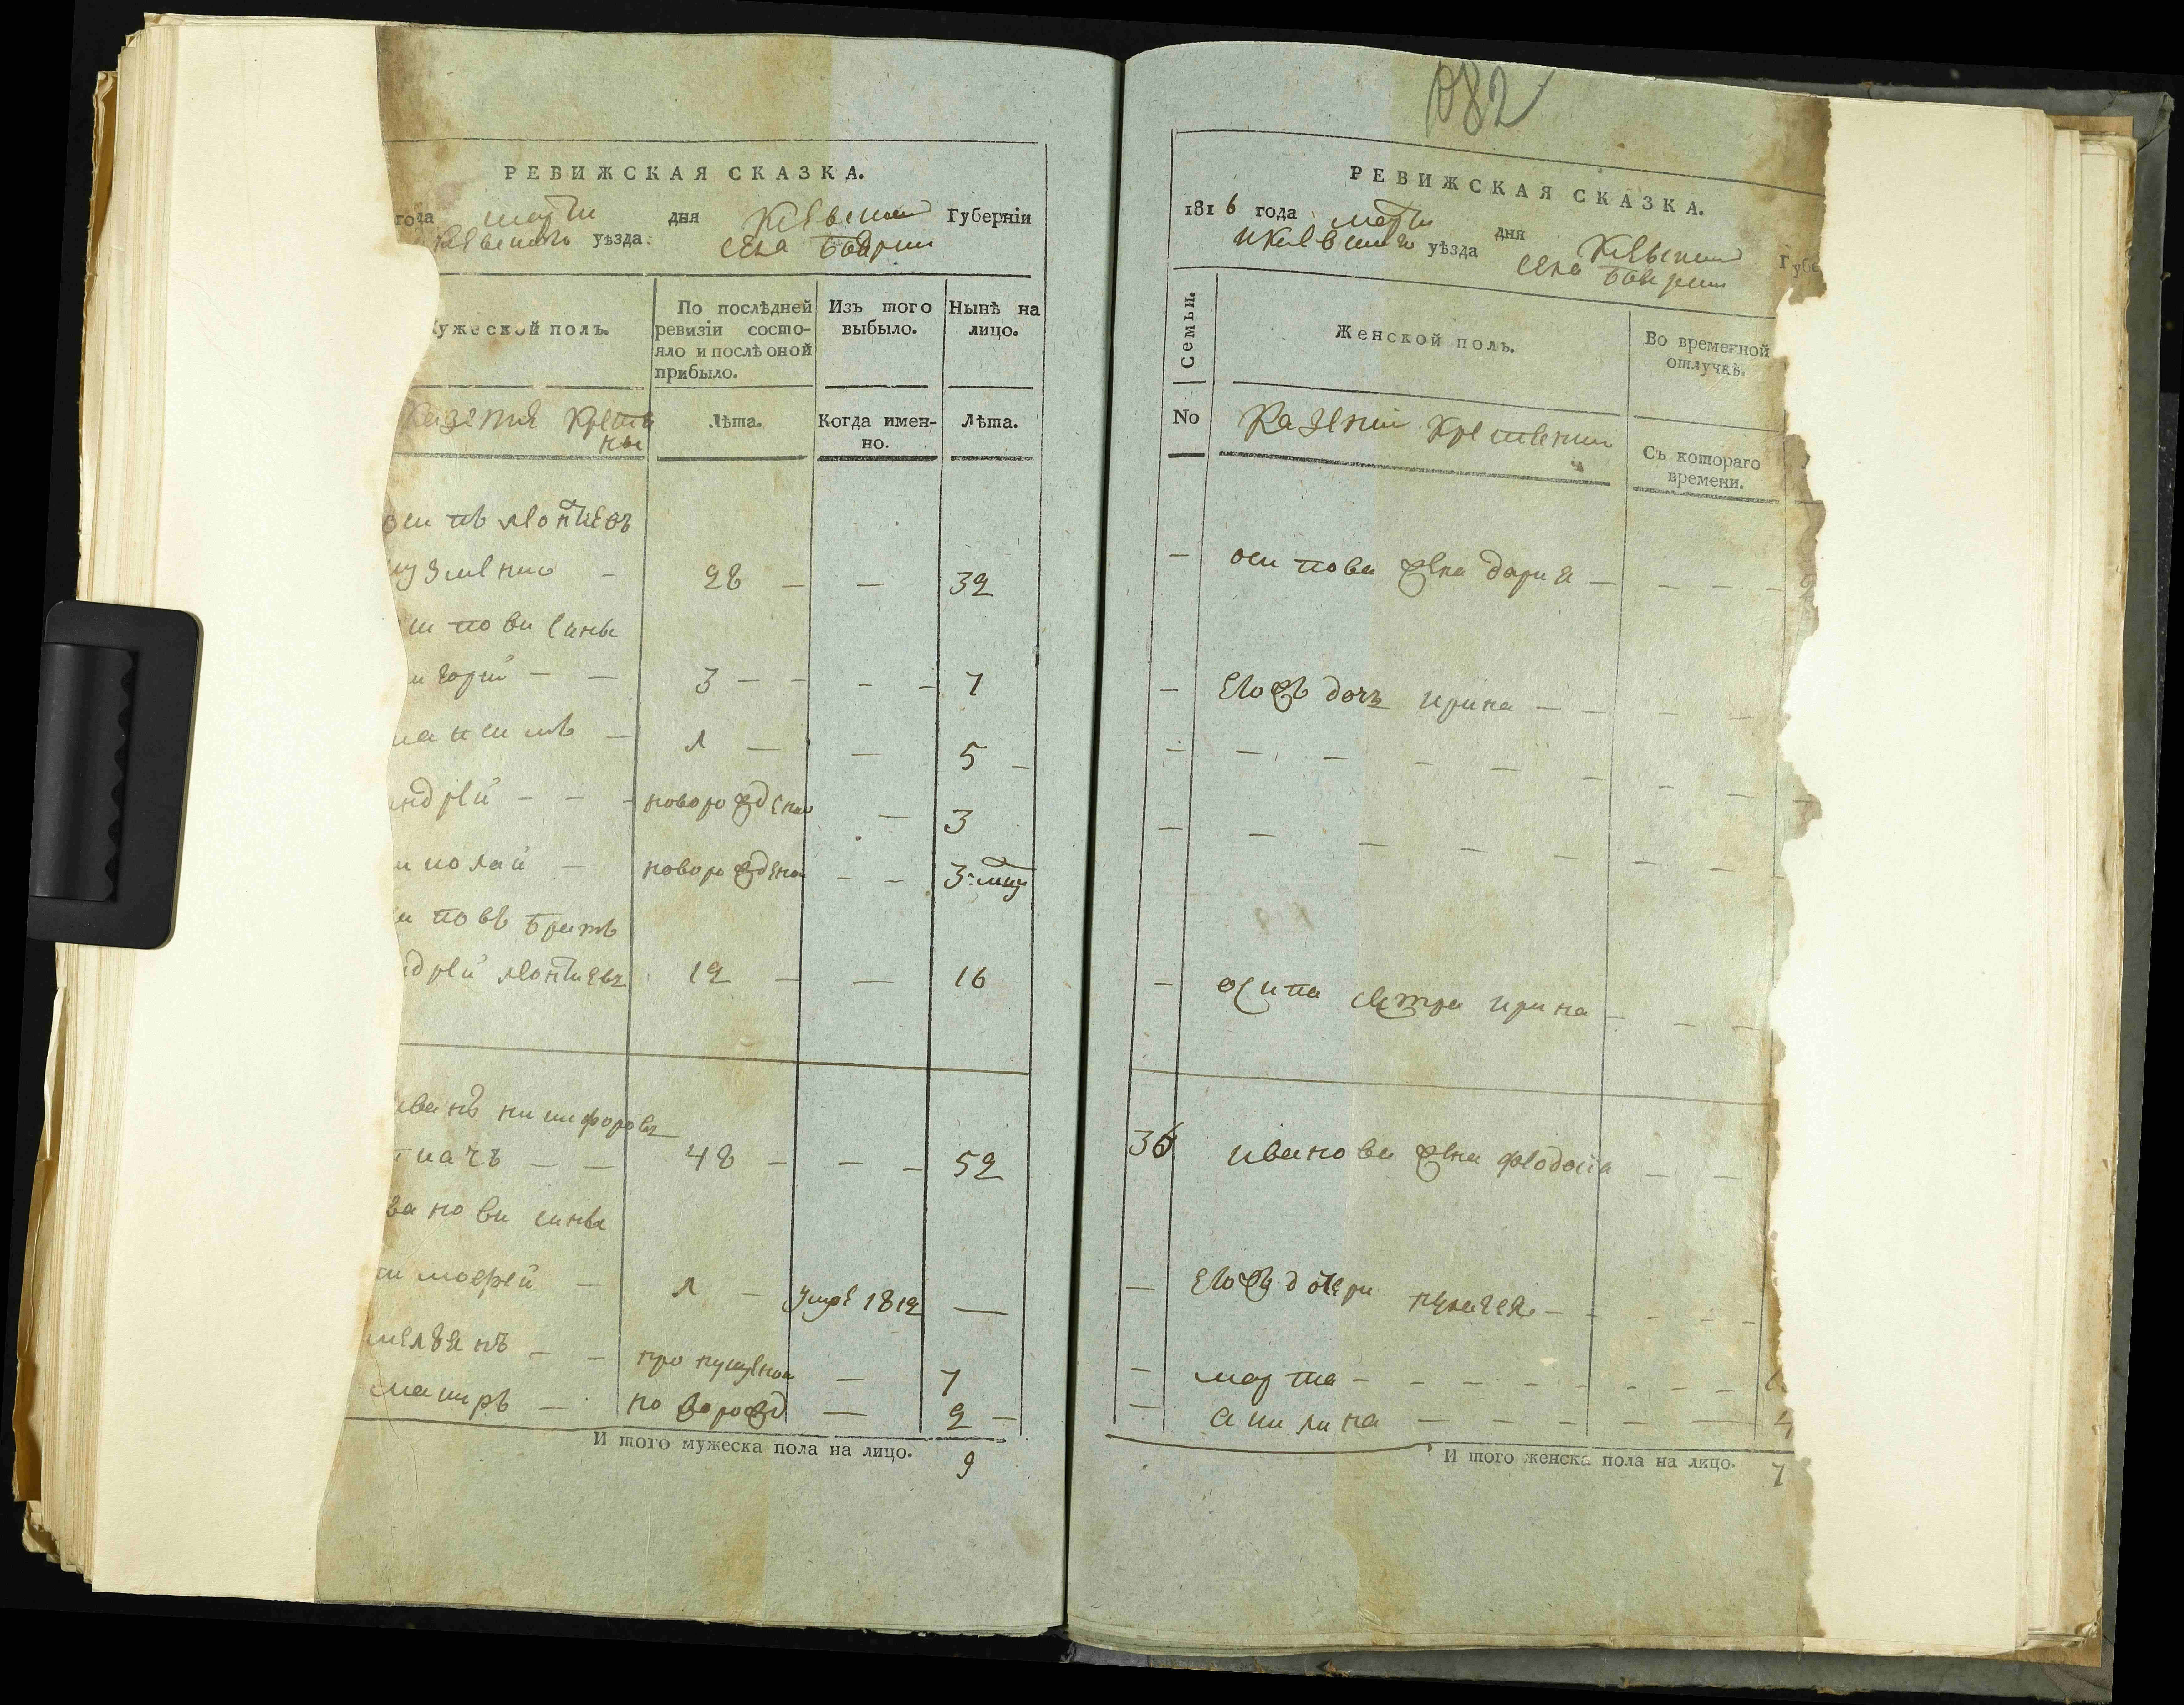 РЕВИЖСКАЯ СКАЗКА.
года марта дня Киевской Губерніи
Киевского уѣзда. села Боярки
ужеской полъ.
По послѣдней ревизіи состо-
яло и послѣ оной
прибыло.
Изъ того
выбыло.
Нынѣ на
лицо.
Лѣта.
Когда имен-
но.
Лѣта.
Казения Крестя
ны
оси пъ леонтиевъ
кузменко — 28 — — 32
си пови сины
игорий — — 3 — — — — 7
максимъ — 1 — — 5 —
андрей — — — новорожденой — 3
иколай — новорожденой — — 3: мцы
си повъ братъ
ндрей леонтиевъ 12 — — 16
иванъ никифоровъ
ткачъ — — 48 — — — 52
ванови сины
тимофей — 1 — умре 1812 —
мелянъ — — пропущеной — 7
макаръ — поворожд — 2 —
И того мужеска пола на лицо. 9
082
РЕВИЖСКАЯ СКАЗКА.
1816 года марта дня Киевской Губе
Киевского уѣзда села Боярки
Семьи.
Женской полъ.
Во временной
отлучкѣ.
No
Казении Крестянки
Съ котораго
времени.
— осипова жена дария — — — —
— егожъ дочъ ирина — — — —
— осипа сестра ирина — — —
36 иванова жена феодосия — —
— егожъ дочери пелагея — — — — —
— марта — — — — — — — — —
— акилина — — — — — 4
И того женска пола на лицо. 7